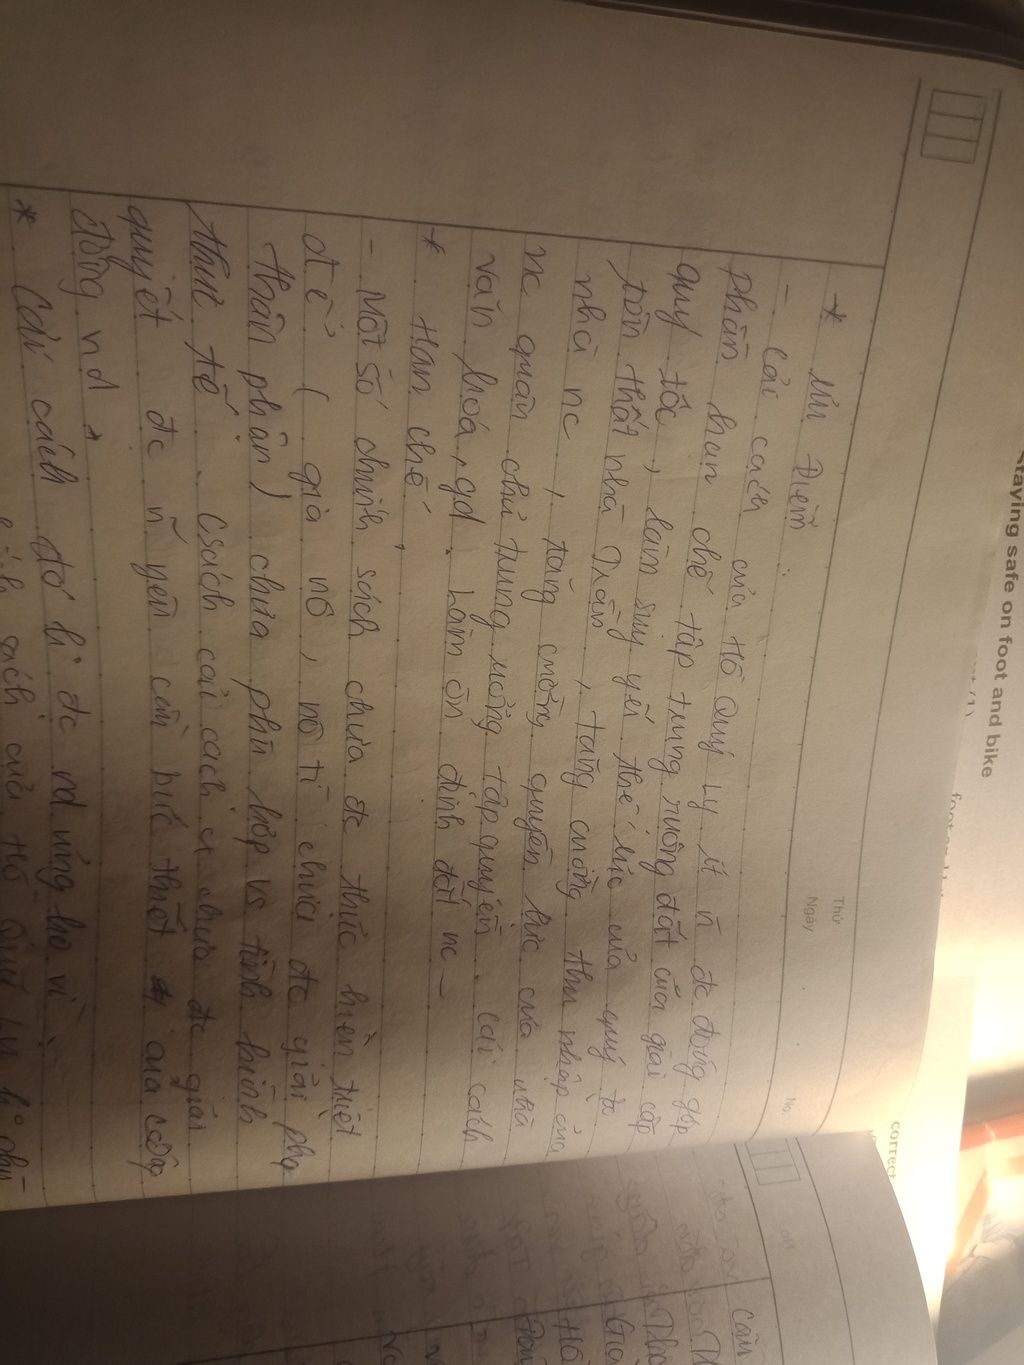 Staying safe on foot and bike
correct
Thứ
Ngày
No.
* Ưu Điểm
- Cải cách của Hồ Quý Ly ít n đc đóng góp
phần hạn chế tập trung ruộng đất của giai cấp
quý tốc, làm suy yếu thế lực của quý tộc
tôn thất nhà Trần, tăng cường thu nhập của
nhà nc, tăng cường quyền lực của nhà
nc quân chủ trung ương tập quyền. Cải cách
văn hoá, gd. Làm ổn định đất nc -
* Hạn chế
- Một số chính sách chưa đc thức hiện triệt
để ( gia nô, nô tì chưa đc giải phóg
thân phận) chưa phù hợp vs tình hình
thực tế. Csách cải cách chưa đc giải
quyết đc ~ yêu cầu bức thiết của cộng
đồng nd.
* Cải cách đó k đc nd ủng hộ vì :
sách của Hồ Quý Ly